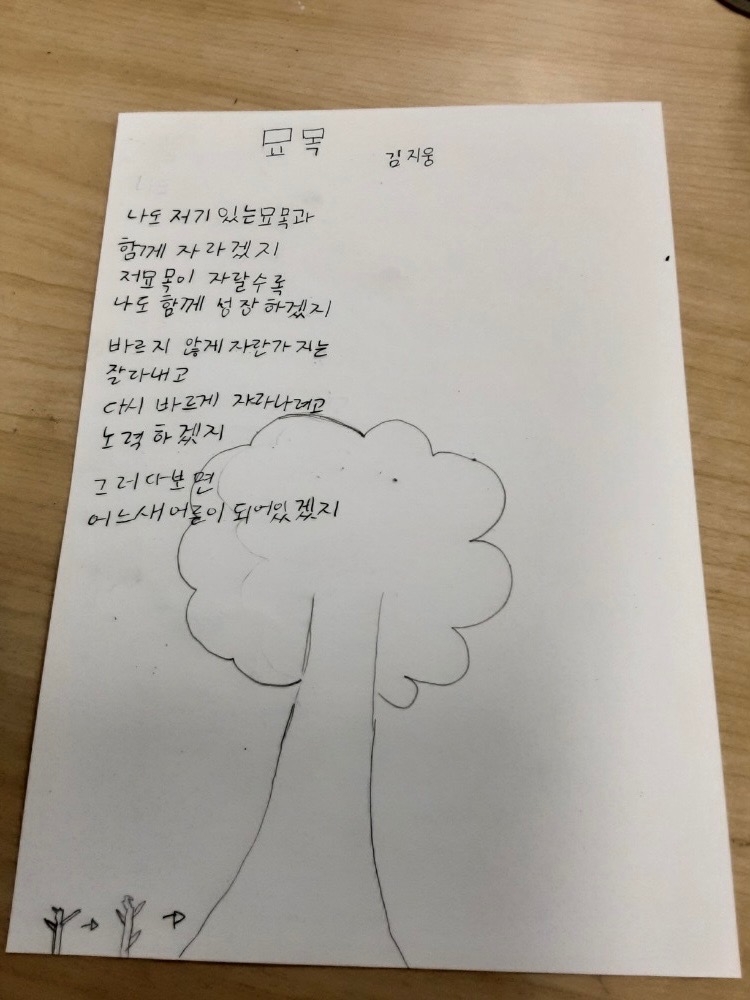 묘목
김지웅
나도 저기 있는묘목과
함께 자라겠지
저묘목이 자랄수록
나도 함께 성장하겠지
바르지 않게 자란가지는
잘라내고
다시 바르게 자라나려고
노력하겠지
그러다보면
어느새어른이 되어있겠지